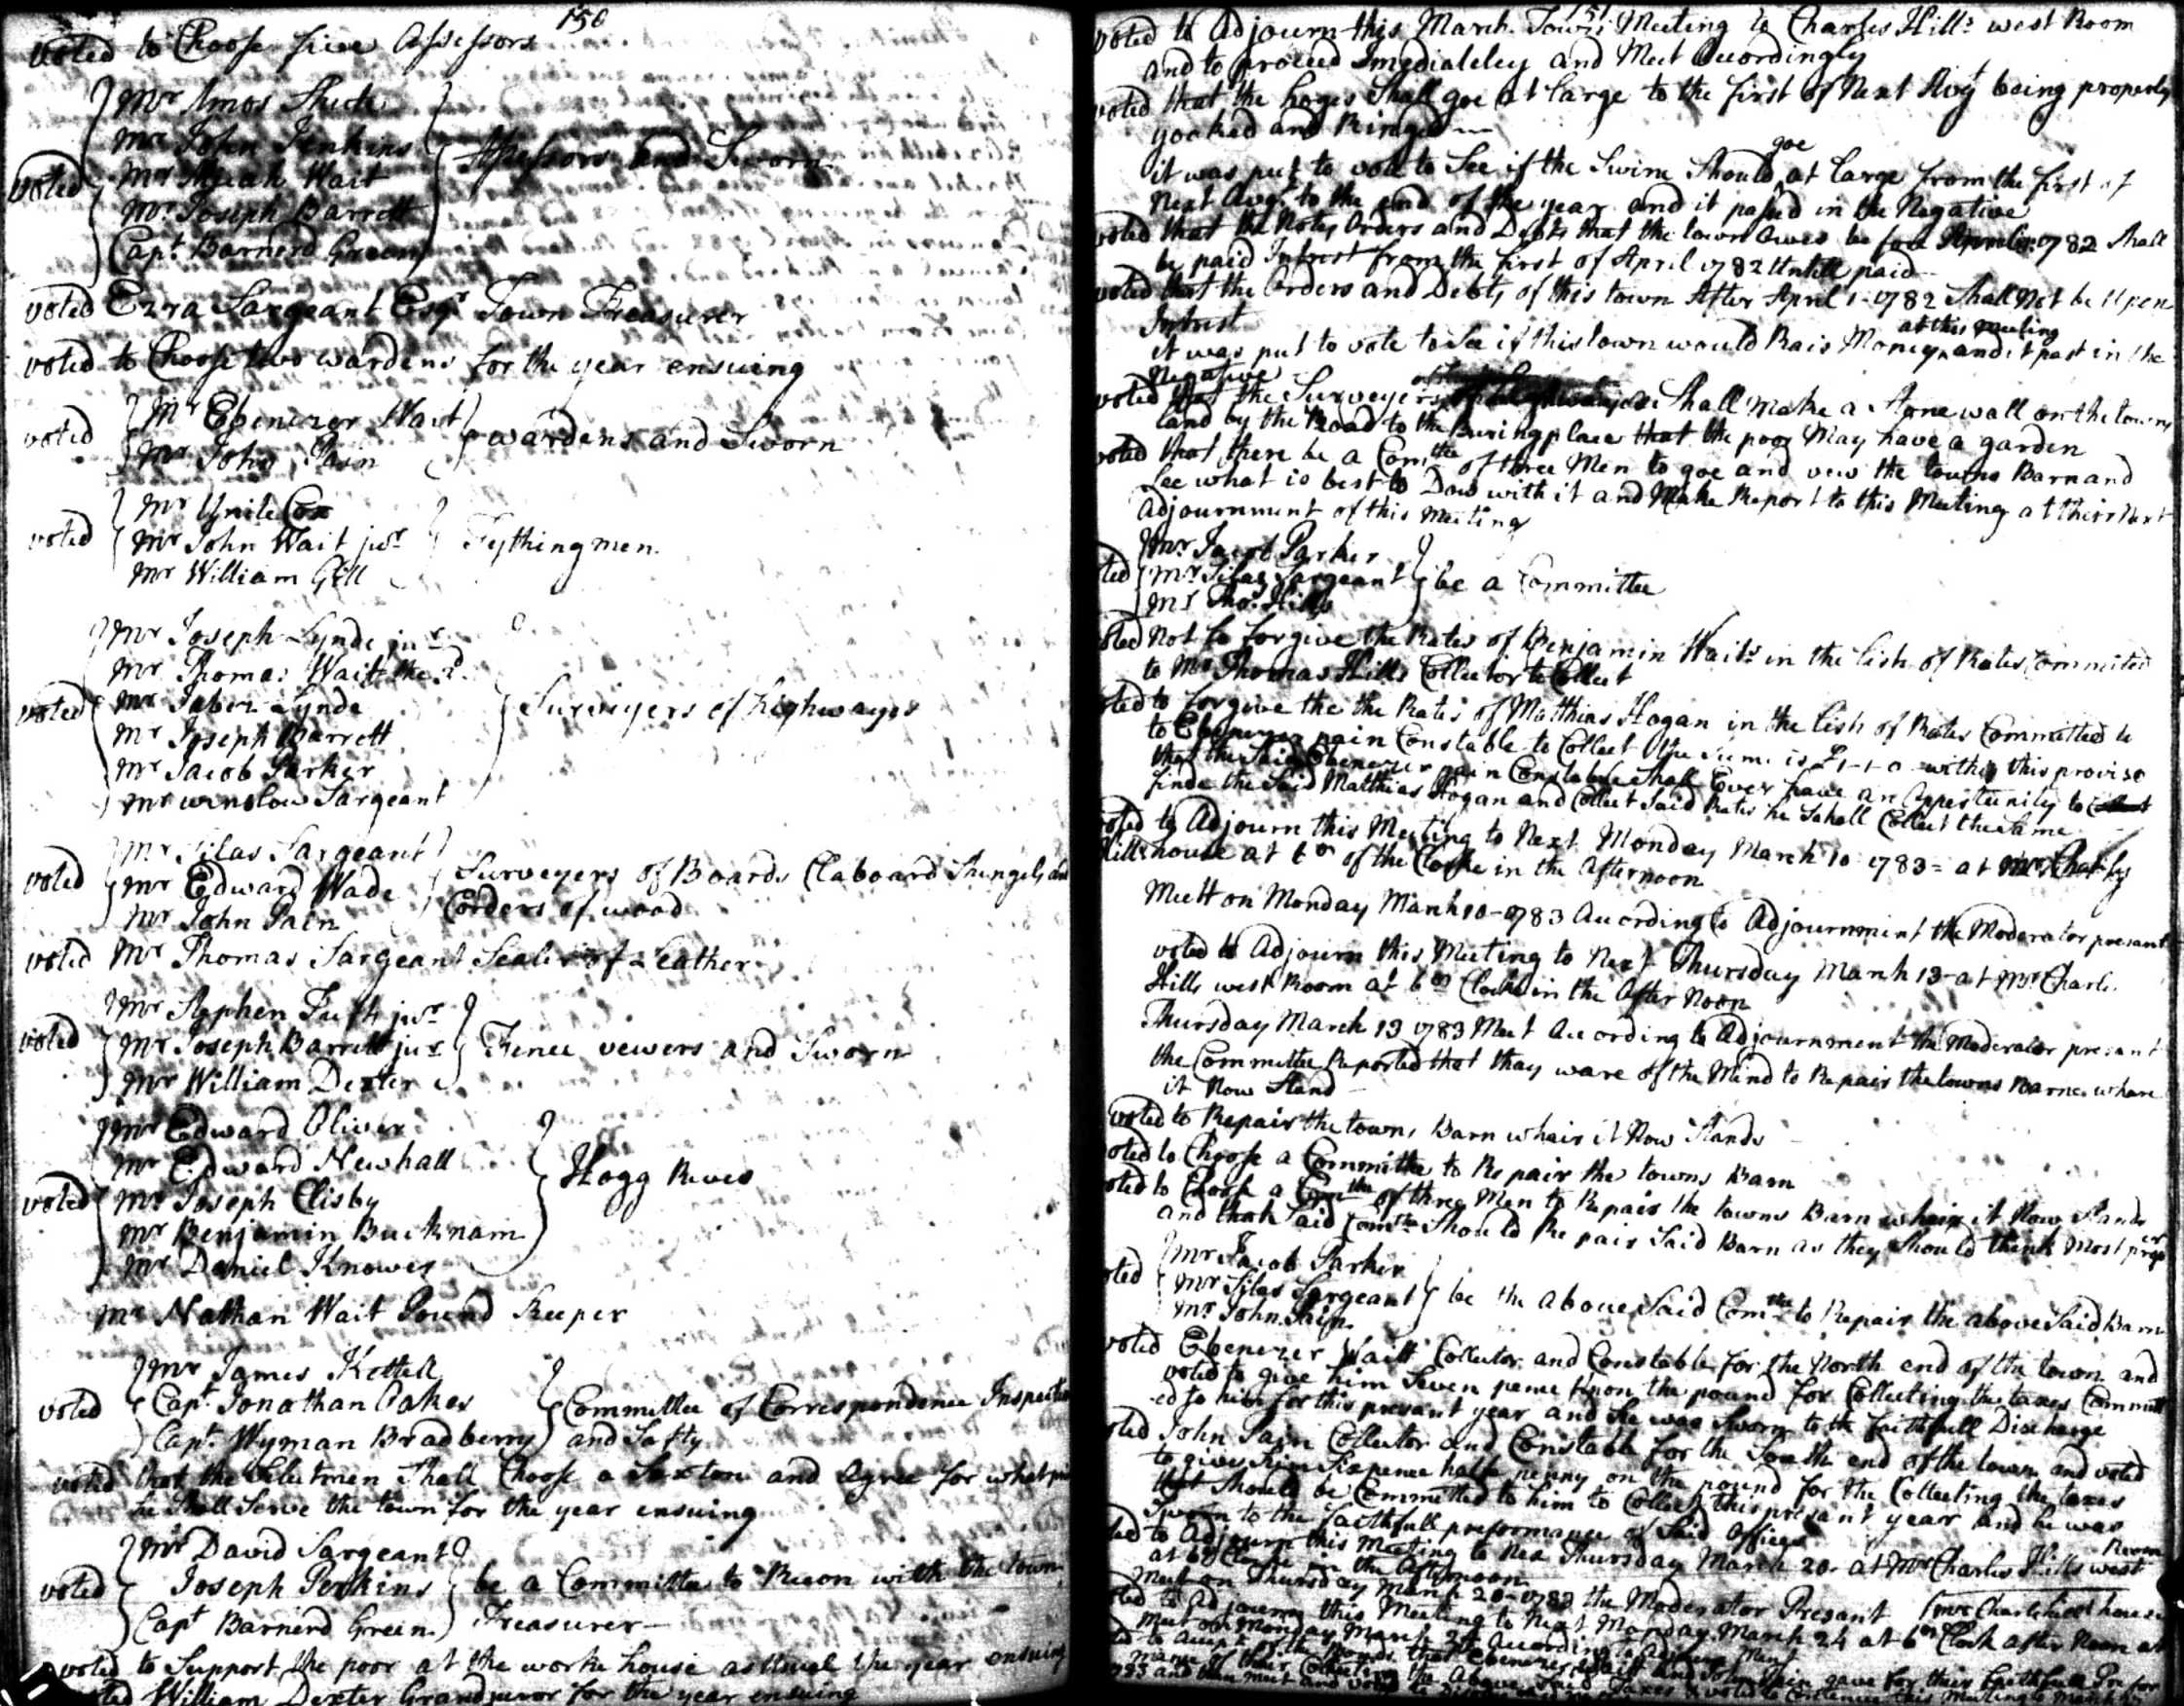 150
voted to Choose five Assessors
Mr Amos Shute
Mr John Jenkins
voted Mr Micah Wait Assessors and Sworn
Mr Joseph Barrett
Capt. Barnerd Green
voted Ezra Sargeant Esqr Town Treasurer
voted to Choose two wardens for the year ensuing
voted Mr Ebenezer Wait wardens and Sworn
Mr John Pain
Mr Unite Cox
voted Mr John Wait jur Tythingmen
Mr William Gill
Mr Joseph Lynde jur
Mr Thomas Wait the 3d.
voted Mr Jabez Lynde Surveyers of highways
Mr Joseph Barrett
Mr Jacob Parker
Mr winslow Sargeant
Mr Silas Sargeant
voted Mr Edward Wade Surveyers of Boards Claboard Shingels and
Mr John Pain Corders of wood
voted Mr Thomas Sargeant Sealer of Leather
Mr Stephen Tufts jur
voted Mr Joseph Barrett jur Fence vewers and Sworn
Mr William Dexter
Mr Edward Oliver
Mr Edward Newhall
voted Mr Joseph Clisby Hogg Reves
Mr Benjamin Bucknam
Mr Daniel Knower
Mr Nathan Wait Pound Keeper
Mr James Kettell
voted Capt. Jonathan Oakes Committee of Correspondence Inspection
Capt. Wyman Bradberry and Safty
voted that the Selectmen Shall Choose a Sexton and agree for what
he Shall Serve the town for the year ensuing
Mr David Sargeant
voted Joseph Perkins be a Committee to Recon with the town
Capt Barnerd Green Treasurer
voted to Support the poor at the worke house as usual the year ensuing
voted William Dexter Grandjuror for the year ensuing
151
voted to Adjourn this March Town Meeting to Charles Hills west Room
and to proceed Imedialeley and Meet Accordingly
voted that the hoges Shall goe at large to the first of Next Augt being properly
yocked and Ringed
it was put to vote to See if the Swine Should goe at large from the first of
Next Augt. to the end of the year and it passed in the Negative
voted that the Notes Orders and Debts that the town Owes be fore April 1782 Shall
be paid Intrest from the first of April 1782 Untill paid
voted that the Orders and Debts of this town After April 1-1782 Shall Not be Upon
Intrest
it was put to vote to See if this town would Rais Money at this meeting and it past in the
Negative
voted that the Surveyers Shall Make a Stone wall on the towns
land by the Road to the Buring place that the poor May have a garden
voted that there be a Comtte of three Men to goe and vew the towns Barn and
See what is best to Dow with it and Make Report to this Meeting at their Next
adjournment of this Meeting
Mr Jacob Parker
voted Mr Silas Sargeant be a Committee
Mr Thos. Hills
voted Not to forgive the Rates of Benjamin Waits in the list of Rates Commited
to Mr Thomas Hills Collector to Collect
voted to forgive the the Rates of Matthias Hogan in the list of Rates Committed to
to Ebenezer pain Constable to Collect the Sum is £1-1-0 with this proviso
that the Said Ebenezer pain Constable Shall Ever have an Oppertunity to
finde the Said Matthias Hogan and Collect Said Rates he Sahall Collect the Same
voted to Adjourn this Meeting to Next Monday March 10 1783 = at Mr Charles
Hills house at 6 on of the Clocke in the Afternoon
Meett on Monday March 10-1783 According to Adjournment the Moderator presant
voted to Adjourn this Meeting to Next Thursday March 13 at Mr Charls
Hills west Room at 6 on Clocke in the After Noon
Thursday March 13 1783 Meet According to Adjournment the Moderator presant
the Committee Reported that thay ware of the Mind to Repair the towns Barne whare
it Now Stand
voted to Repair the towns Barn whair it Now Stands
voted to Choose a Committe to Repair the towns Barn
voted to Choose a Comtte of three Men to Repair the towns Barn whair it Now Stands
and that Said Comtte Should Repair Said Barn as they Should think Most proper
Mr Jacob Parker
voted Mr Silas Sargeant be the above Said Comtte to Repair the above Said Barn
Mr John Pain
voted Ebenezer Waitt Collector and Constable for the North end of the town and
voted to give him Seven pence Upon the pound for Collecting the taxes Committ
ed to him for this presant year and he was Sworn to the faithfull Discharge
voted John Pain Collector and Constable for the South end of the town and voted
to give him Six pence half penny on the pound for the Collecting the taxes
that Should be Committed to him to Collect this presant year and he was
Sworn to the faithfull preformance of Said Office
voted to Adjourn this Meeting to Nex Thursday March 20 at Mr Charles Hills west Room
at 6 on Clocke in the Afternoon
Meet on Thursday March 20-1783 the Moderator Presant
voted to Adjourn this Meeting to Next Monday March 24 at 6 on Clock after Noon at Mr Charls hills house
Meet on Monday March 24 According to Adjournment
voted to accept of the Bonds that Ebenezer Waitt and John Pain gave for their faithfull